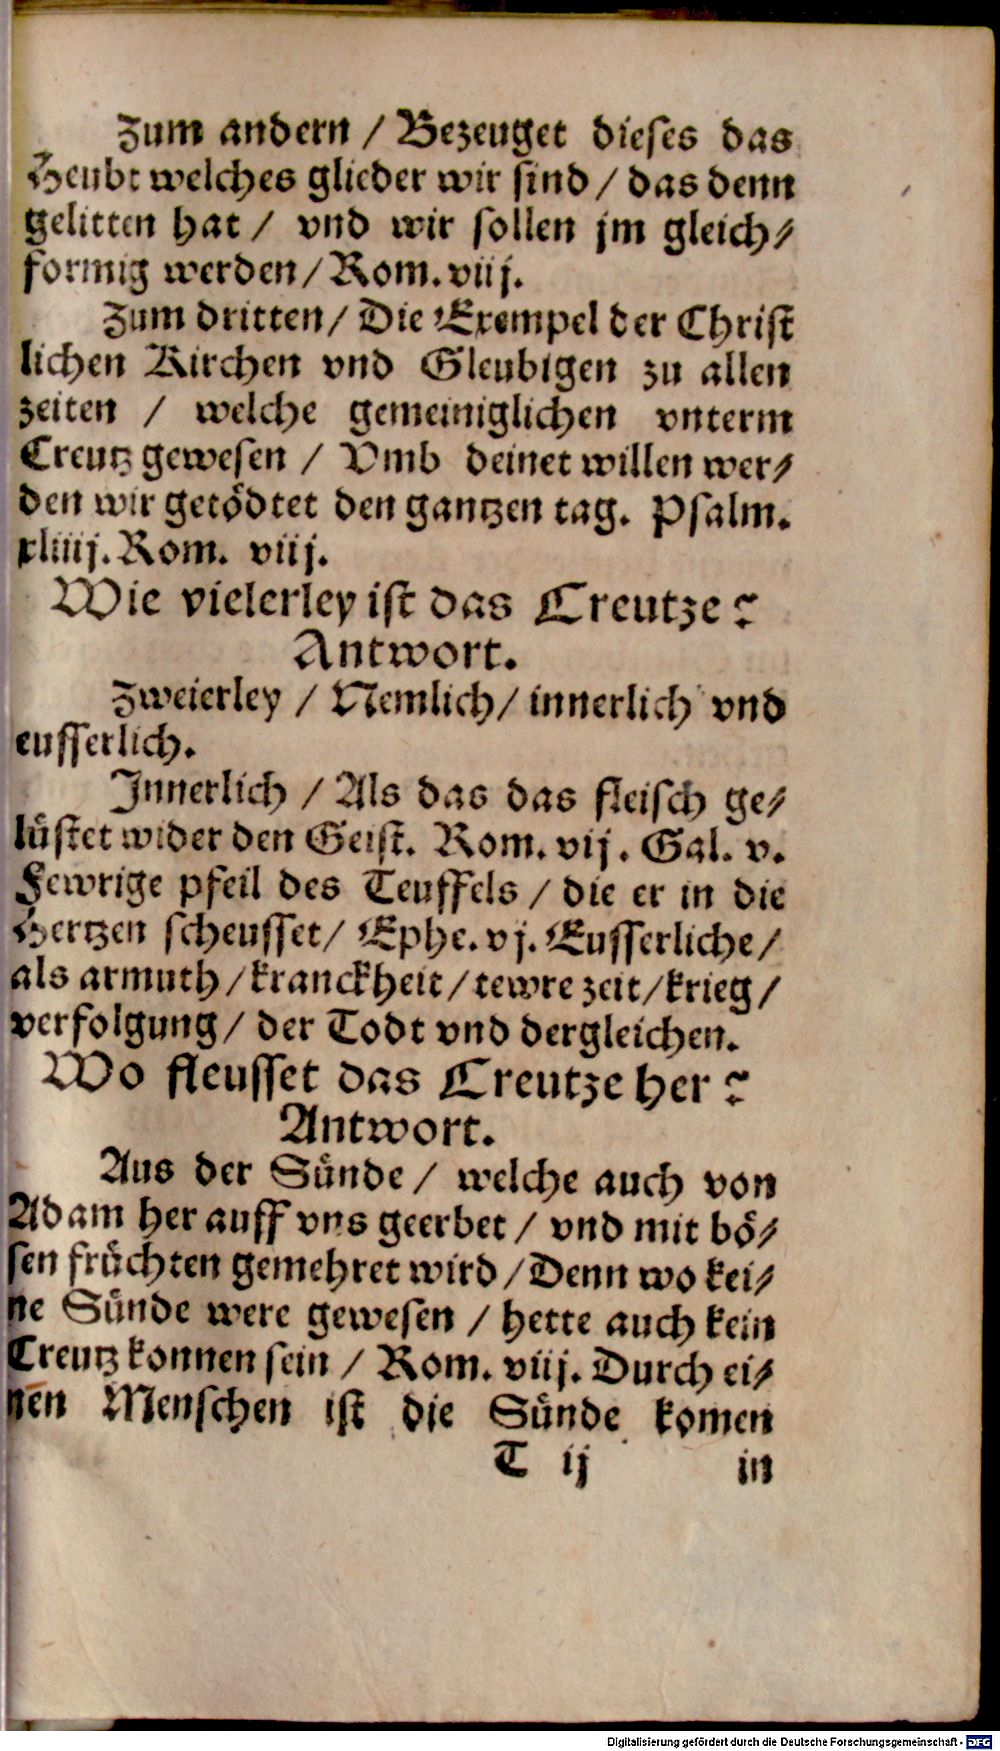 Zum andern / Bezeuget dieses das
Heubt welches glieder wir sind / das denn
gelitten hat / vnd wir sollen jm gleich⸗
formig werden / Rom. viij.
Zum dritten / Die Exempel der Christ
lichen Kirchen vnd Gleubigen zu allen
zeiten / welche gemeiniglichen vnterm
Creutz gewesen / Vmb deinet willen wer⸗
den wir getödtet den gantzen tag. Psalm.
xliiij. Rom. viij.
Wie vielerley ist das Creutze?
Antwort.
Zweierley / Nemlich / innerlich vnd
eusserlich.
Innerlich / Als das das fleisch ge⸗
lüstet wider den Geist. Rom. vij. Gal. v.
Fewrige pfeil des Teuffels / die er in die
Hertzen scheusset / Ephe. vj. Eusserliche /
als armuth / kranckheit / tewre zeit / krieg /
verfolgung / der Todt vnd dergleichen.
Wo fleusset das Creutze her?
Antwort.
Aus der Sünde / welche auch von
Adam her auff vns geerbet / vnd mit bö⸗
sen früchten gemehret wird / Denn wo kei⸗
ne Sünde were gewesen / hette auch kein
Creutz konnen sein / Rom. viij. Durch ei⸗
nen Menschen ist die Sünde komen
T ij in
Digitalisierung gefördert durch die Deutsche Forschungsgemeinschaft - DFG